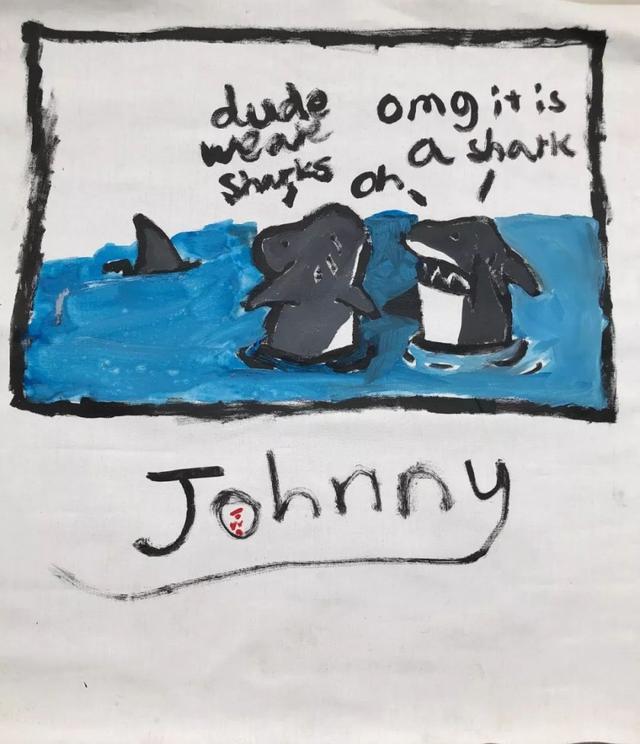 dude
we are
Sharks
omg it is
a shark
oh
Johnny